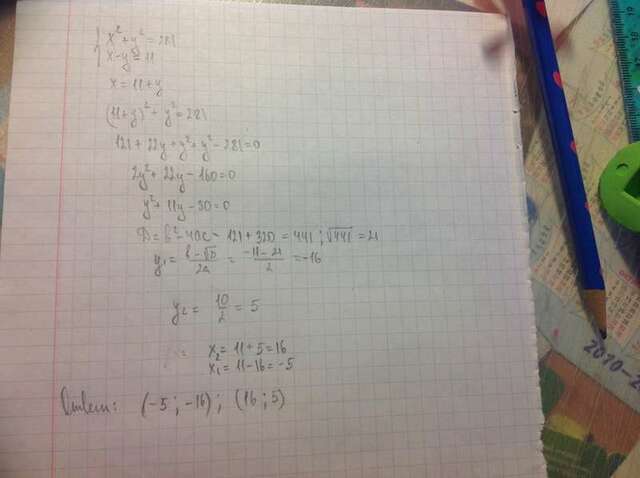 { x² + y² = 281
x - y = 11
x = 11 + y
(11 + y)² + y² = 281
121 + 22y + y² + y² - 281 = 0
2y² + 22y - 160 = 0
y² + 11y - 80 = 0
D = b² - 4ac = 121 + 320 = 441 ; √441 = 21
y₁ = b - √D / 2a = -11 - 21 / 2 = -16
y₂ = 10 / 2 = 5
x₂ = 11 + 5 = 16
x₁ = 11 - 16 = -5
Ответ: (-5 ; -16) ; (16 ; 5)
2010-2